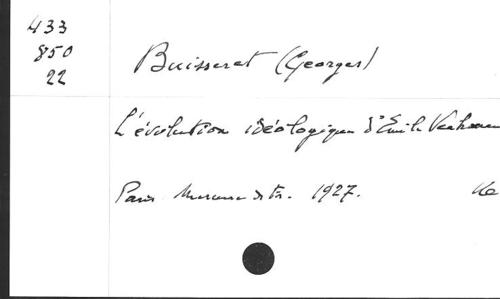 433
850
22
Buisseret (Georges)
L'évolution idéologique d'Emile Verhaeren
Paris Mercure de Fr. 1927.